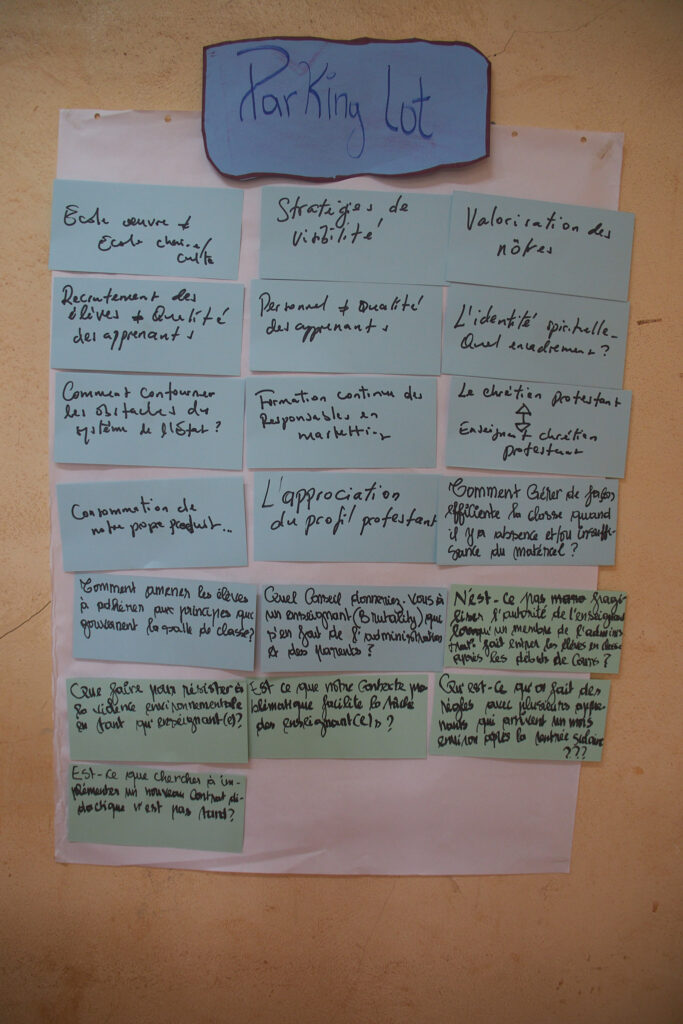 Parking Lot
Ecole œuvre &
Ecole
Stratégies de
visibilité
Valorisation des
nôtres
Recrutement des
élèves & Qualité
des apprenants
Personnel & Qualité
des apprenants
L'identité spirituelle
Quel encadrement ?
Comment contourner
les obstacles du
système de l'Etat ?
Formation continue des
Responsables en
marketting
Le chrétien protestant
Enseignant chrétien
protestant
Consommation de
notre propre produit...
L'approciation
du profil protestant
Comment Gérer de façon
efficiente la classe quand
il y a absence et/ou insuffi-
sance du matériel ?
Comment amener les élèves
à adhérer aux principes qui
gouvernent la salle de classe ?
Quel Conseil donneriez-vous à
un enseignant (Brutality) que
l'administration
& des Parents ?
N'est-ce pas fragi-
liser l'autorité de l'enseignant
lorsqu'un membre de l'adminis-
trat° fait entrer les élèves en classe
après les débuts de Cours ?
Que faire pour résister à
la violence environnementale
en tant qu'enseignant(e) ?
Est ce que notre Contexte pro-
blématique facilite la tâche
des enseignant(e)s ?
Qu'est-ce qu'on fait des
règles avec plusieurs appre-
nants qui arrivent un mois
environ après la rentrée scolaire
???
Est-ce que chercher à im-
plémenter un nouveau Contrat di-
dactique n'est pas tard ?